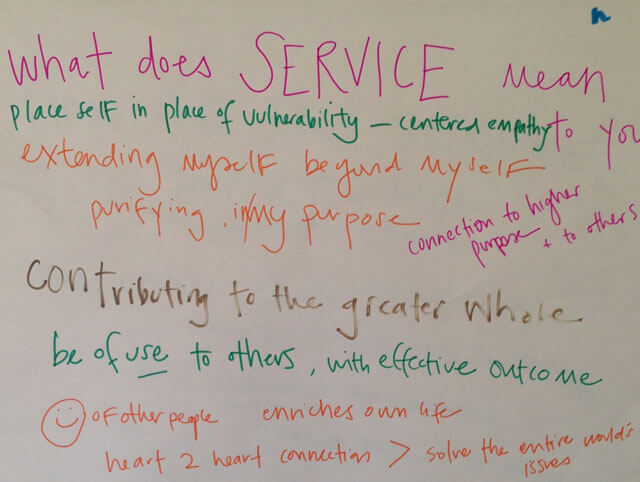 What does SERVICE mean
to you
place self in place of vulnerability – centered empathy
extending myself beyond myself
purifying in/my purpose
connection to higher
purpose + to others
contributing to the greater whole
be of use to others, with effective outcome
☺ of other people enriches own life
heart 2 heart connection > solve the entire world's
issues